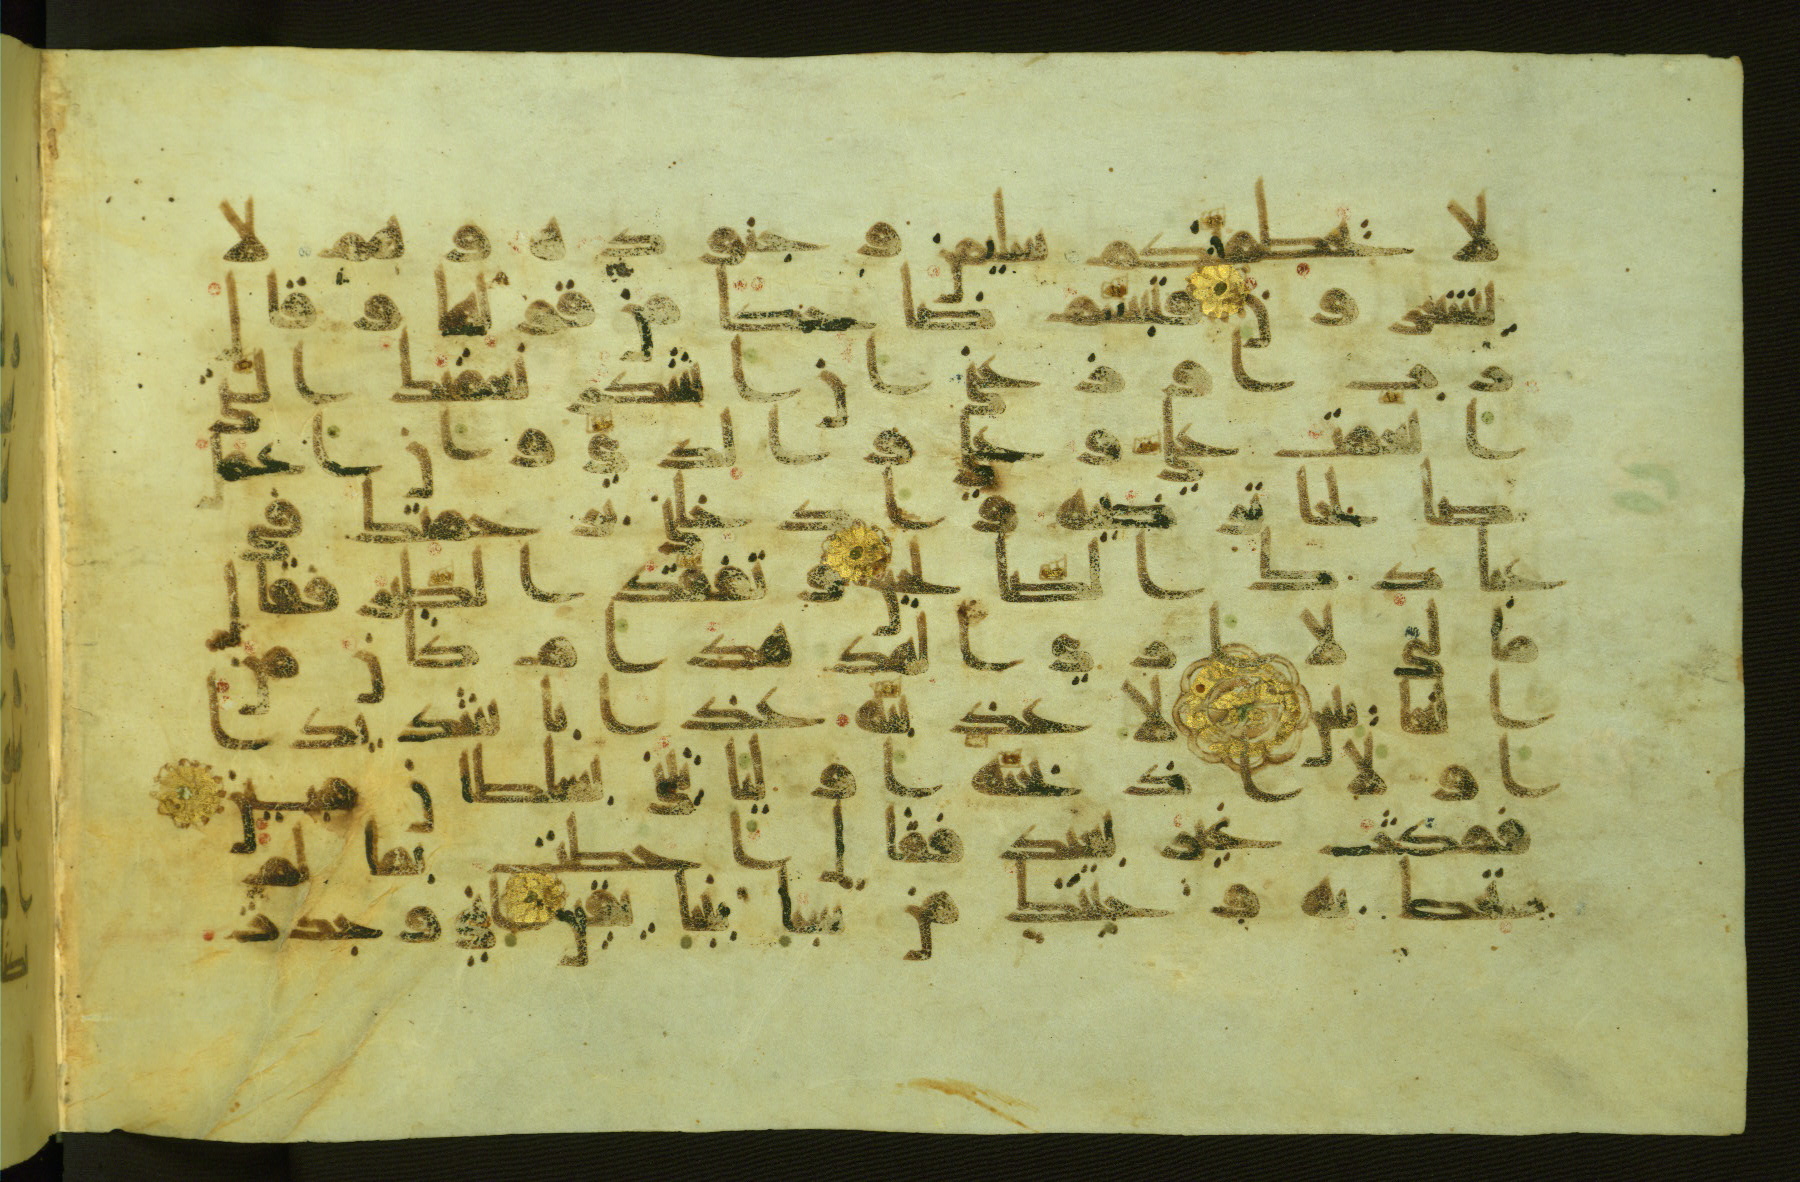 لا يحطمنكم سليمن وجنوده وهم لا
يشعرون فتبسم ضاحكا من قولها وقال
رب اوزعني ان اشكر نعمتك التي
انعمت علي وعلى والدي وان اعمل
صالحا ترضيه وادخلني برحمتك في
عبادك الصالحين وتفقد الطير فقال
ما لي لا ارى الهدهد ام كان من
الغائبين لاعذبنه عذابا شديدا
او لااذبحنه او لياتيني بسلطان مبين
فمكث غير بعيد فقال احطت بما لم
تحط به وجئتك من سبا بنبا يقين اني وجدت